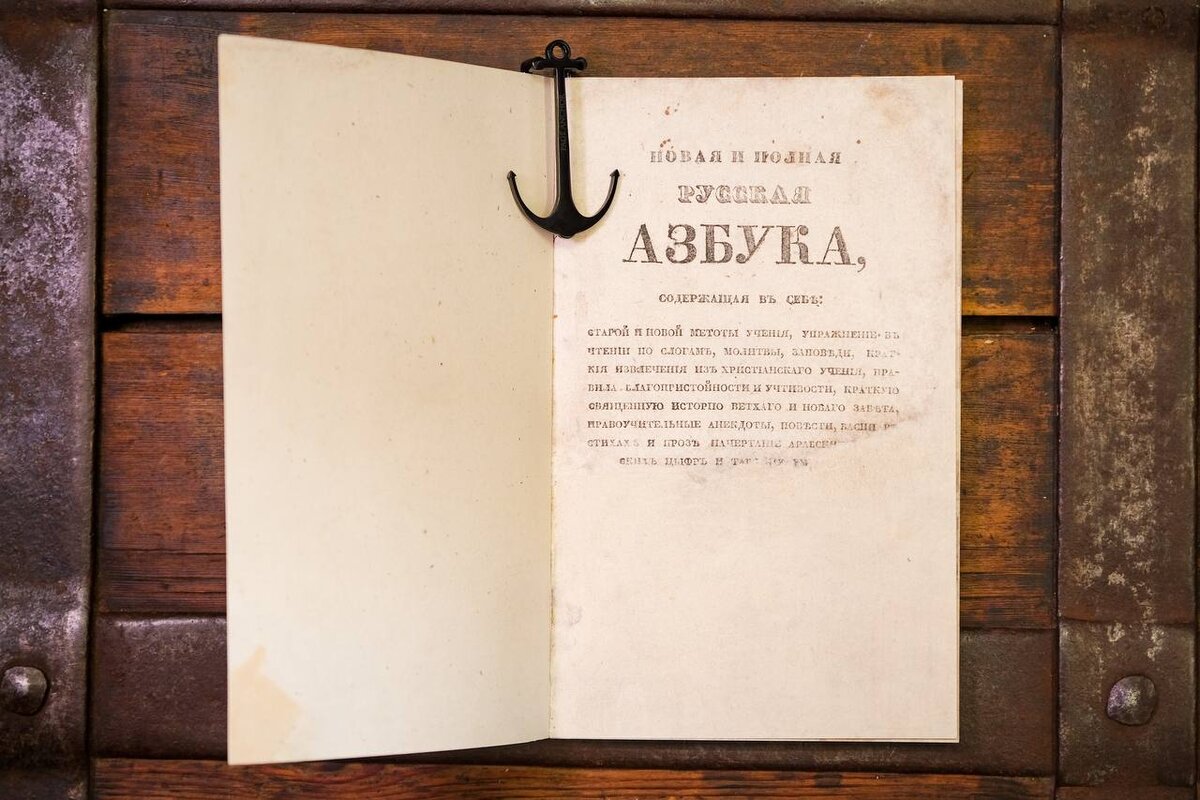 НОВАЯ И ПОЛНАЯ
РУССКАЯ
АЗБУКА,
СОДЕРЖАЩАЯ ВЪ СЕБѢ:
СТАРОЙ И НОВОЙ МЕТОТЫ УЧЕНІЯ, УПРАЖНЕНІЕ ВЪ
ЧТЕНІИ ПО СЛОГАМЪ, МОЛИТВЫ, ЗАПОВѢДИ, КРАТ-
КІЯ ИЗВЛЕЧЕНІЯ ИЗЪ ХРИСТІАНСКАГО УЧЕНІЯ, ПРА-
ВИЛА БЛАГОПРИСТОЙНОСТИ И УЧТИВОСТИ, КРАТКУЮ
СВЯЩЕННУЮ ИСТОРІЮ ВЕТХАГО И НОВАГО ЗАВѢТА,
НРАВОУЧИТЕЛЬНЫЕ АНЕКДОТЫ, ПОВѢСТИ, БАСНИ
СТИХАХЪ И ПРОЗѢ НАЧЕРТАНІЕ
СКИХЪ ЦЫФРЪ И